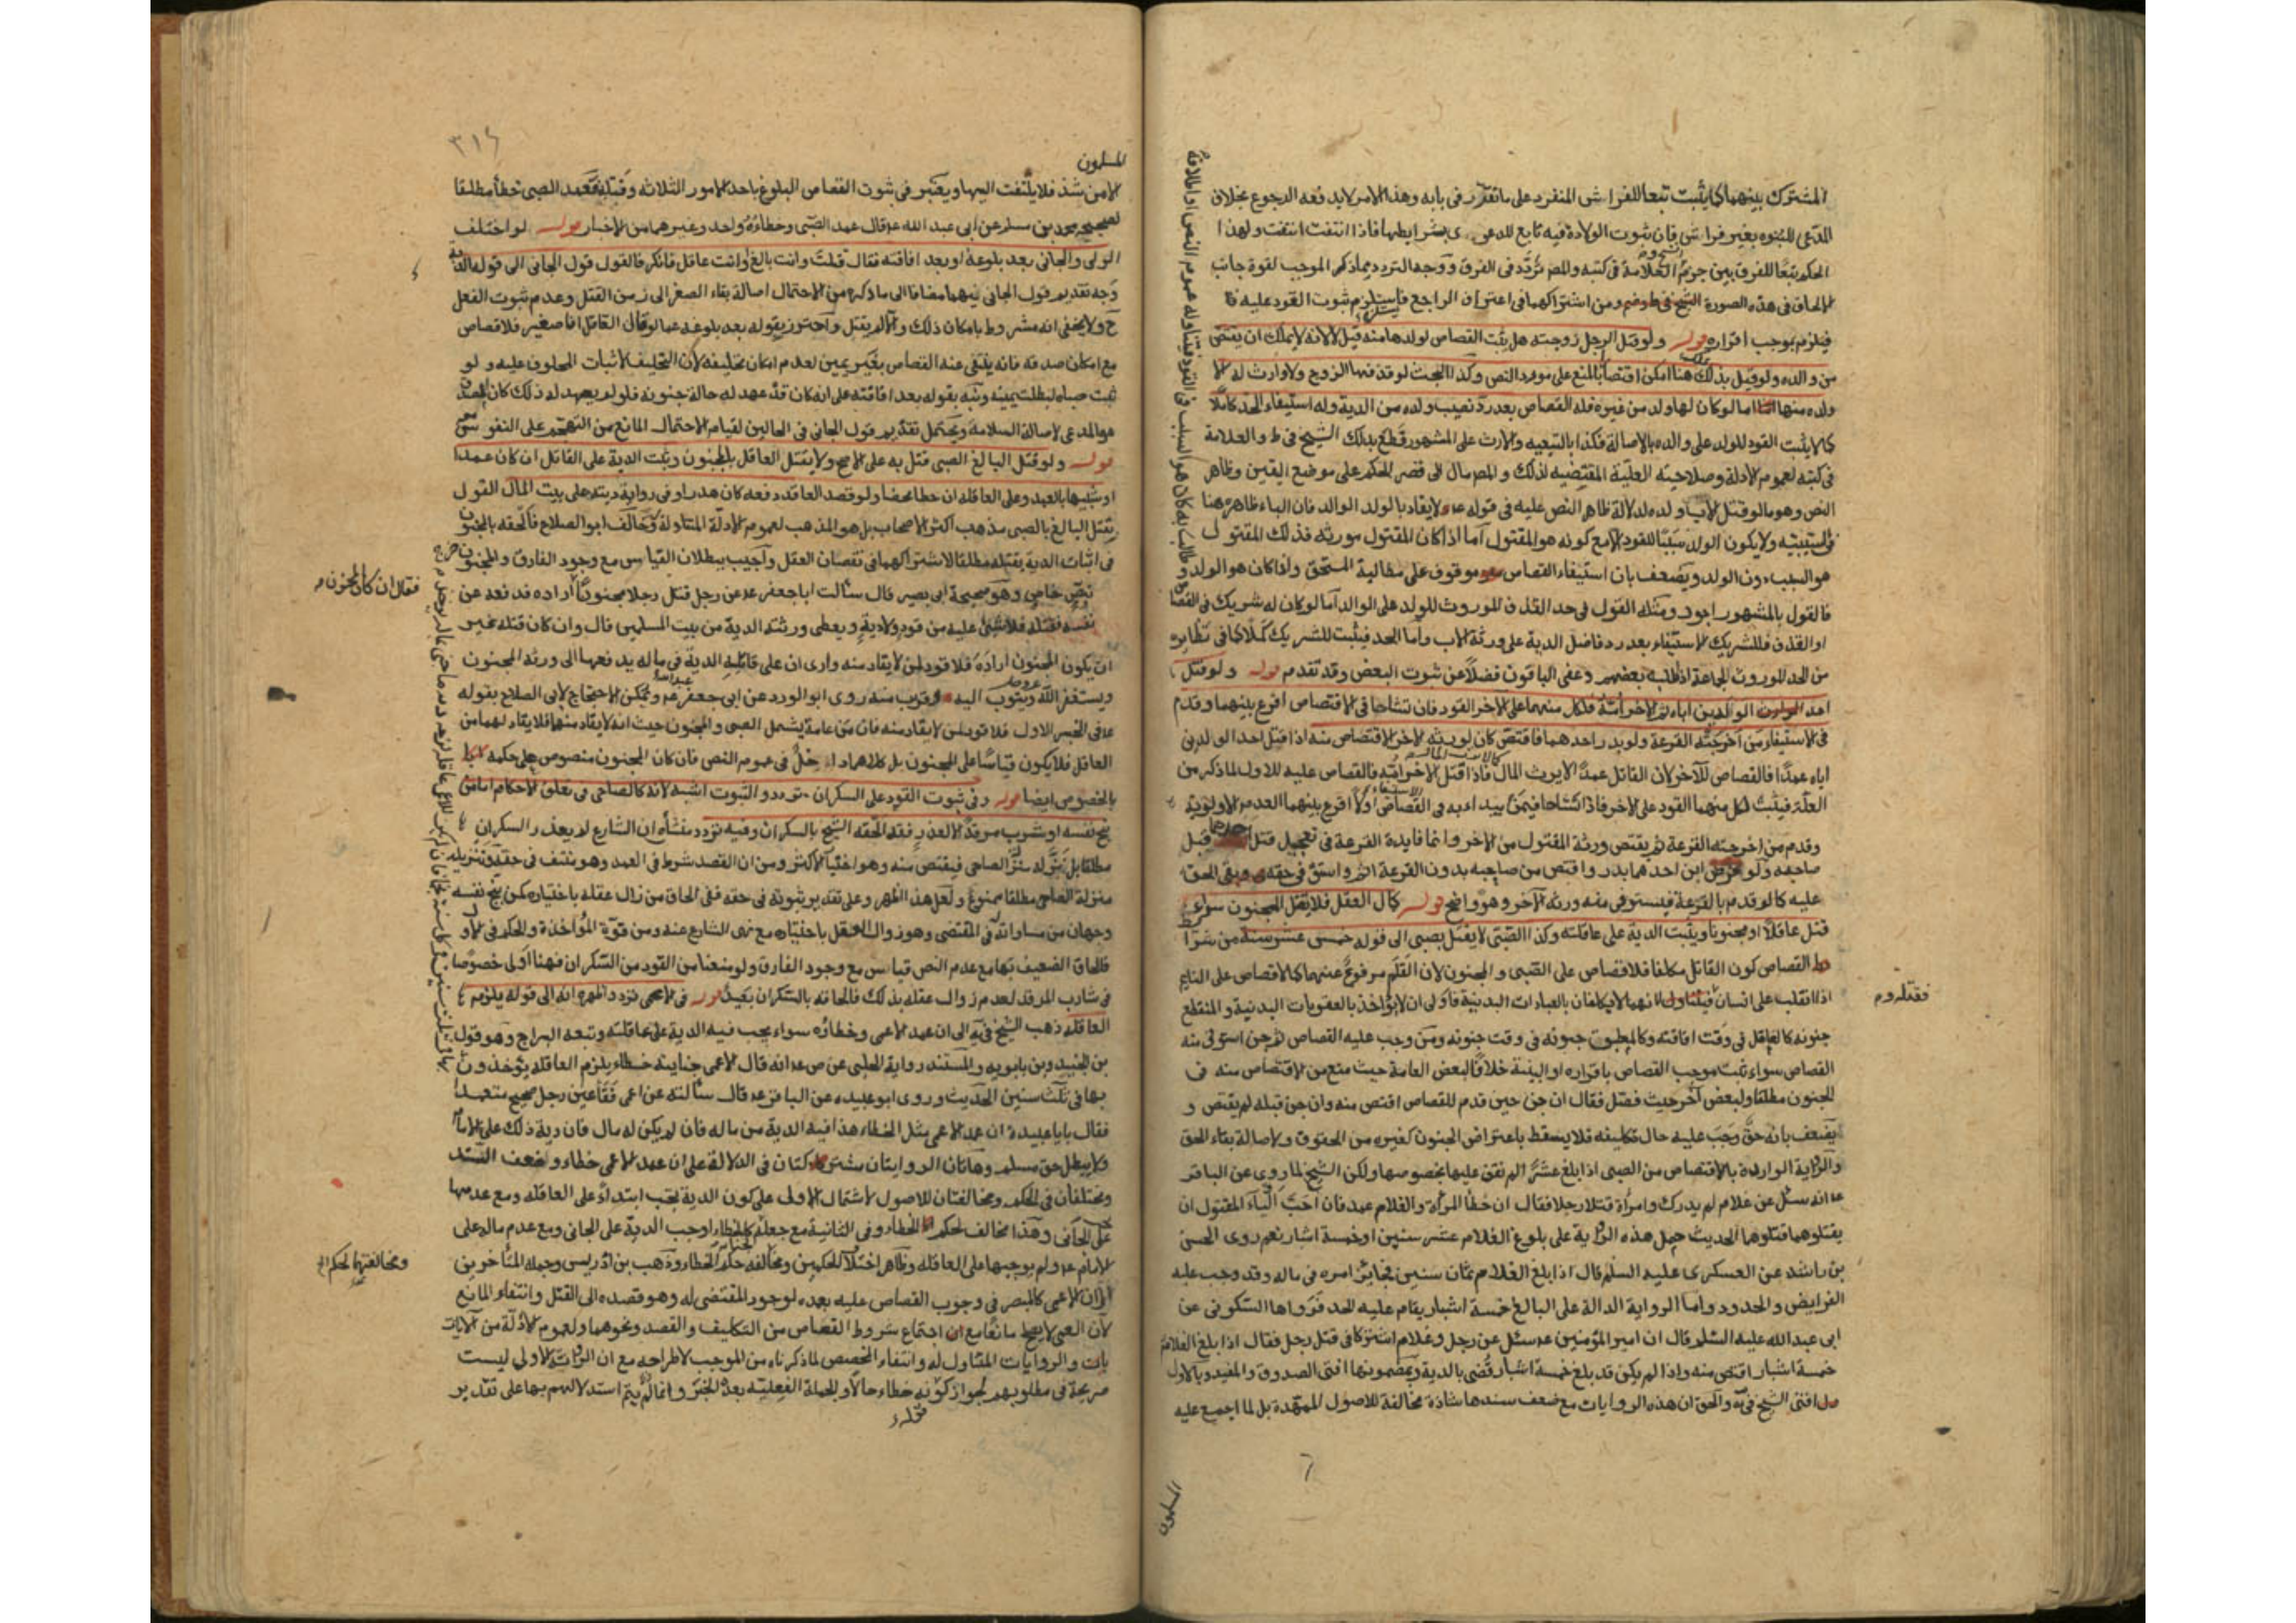 المشترك بينهما كما يثبت تبعا للفراش المنفرد على ما تقرر في بابه وهذا الامر لا يدفعه الرجوع بخلاف
المدعى للبنوه بغير فراش فان ثبوت الولادة فيه تابع للدعوى بشرايطها فاذا انتفت انتفت ولهذا
الحكم تبعا للفرق بين جزم العلامة في كتبه والمص تردد في الفرق ووجه التردد مما ذكر الموجب لقوة جانب
الالحاق في هذه الصورة ومن اشتراكهما في اعتراف الراجع فاستلزم ثبوت القود عليه
فيلزم بموجب اقراره قوله ولو قتل الرجل زوجته هل يثبت القصاص لولدها منه قيل لا لانه لا يملك ان يقتص
من والده ولو قيل بذلك هنا امكن اقتصارا بالمنع على مورد النص وكذا البحث لو قذفها الزوج ولا وارث له الا
ولده منها اما لو كان لها ولد من غيره فله القصاص بعد رد نصيب ولده من الدية وله استيفاء الحد كاملا
كما لا يثبت القود للولد على والده بالاصالة فكذا بالتبعيه والارث على المشهور قطع بذلك الشيخ في ط والعلامة
في كتبه لعموم الادلة وصلاحيته العليه المقتضيه لذلك والمص مال الى قصر الحكم على موضع اليقين وظاهر
النص وهو ما لو قتل الاب ولده لدلالة ظاهر النص عليه في قوله عم لا يقاد بالولد الوالد فان الباء ظاهره هنا
في السببيه ولا يكون الولد سببا للقود الا مع كونه هو المقتول اما اذا كان المقتول مورثه فذلك المقتول
هو السبب دون الولد ويضعف بان استيفاء القصاص موقوف على مطالبة المستحق واذا كان هو الولد و
فالقول بالمشهور اجود ومثله القول في حد القذف الموروث للولد على الوالد اما لو كان له شريك في القصاص
او القذف فللشريك الاستيفاء بعد رد فاضل الدية على ورثة الاب واما الحد فيثبت للشريك كملا كما في نظايره
من الحد الموروث لجماعة اذا طلبه بعضهم وعفى الباقون فضلا عن ثبوت البعض وقد تقدم قوله ولو قتل
احد الوالدين اباه ثم الاخر امه فلكل منهما على الاخر القود فان تشاحا في الاقتصاص اقرع بينهما وقدم
في الاستيفاء من اخرجته القرعة ولو بدر احدهما فاقتص كان لورثه الاخر الاقتصاص منه اذا قتل احد الولدين
اباه عمدا فالقصاص للاخر لان القاتل عمدا لا يرث المال فاذا قتل الاخر امه فالقصاص عليه للاول لما ذكر من
العلة فيثبت لكل منهما القود على الاخر فاذا تشاحا فيمن يبداء به في القصاص اولا اقرع بينهما لعدم الاولوية
وقدم من اخرجته القرعة ثم يقتص ورثة المقتول من الاخر وانما فايدة القرعة في تعجيل قتل احدهما قبل
صاحبه ولو فرض ان احدهما بدر واقتص من صاحبه بدون القرعة اثم واستوفى حقه وبقي الحق
عليه كما لو قدم بالقرعة فيستوفي منه ورثه الاخر وهو واضح قوله كمال العقل فلا يقتل المجنون سواء
قتل عاقلا او مجنونا ويثبت الدية على عاقلته وكذا الصبي لا يقتل بصبي الى قوله خمس عشر سنة من شرا
ئط القصاص كون القاتل مكلفا فلا قصاص على الصبي والمجنون لان القلم مرفوع عنهما كما لا قصاص على النايم
اذا انقلب على انسان فقتله ولانهما لا يكلفان بالعبادات البدنية فاولى ان لا يؤاخذ بالعقوبات البدنية والمنقطع
جنونه كالعاقل في وقت افاقته وكالمطبق جنونه في وقت جنونه ومن وجب عليه القصاص ثم جن استوفى منه
القصاص سواء ثبت موجب القصاص باقراره او البينة خلافا لبعض العامة حيث منع من الاقتصاص منه في
الجنون مطلقا ولبعض اخر حيث فصل فقال ان جن حين قدم للقصاص اقتص منه وان جن قبله لم يقتص و
يضعف بانه حق وجب عليه حال تكليفه فلا يسقط باعتراض الجنون كغيره من الحقوق ولاصالة بقاء الحق
والرواية الواردة بالاقتصاص من الصبي اذا بلغ عشرا لم نقف عليها بخصوصها ولكن الشيخ لما روى عن الباقر
عم انه سئل عن غلام لم يدرك وامراة قتلا رجلا فقال ان خطأ المراة والغلام عمد فان احب اولياء المقتول ان
يقتلوهما قتلوهما الحديث حمل هذه الرواية على بلوغ الغلام عشر سنين او خمسة اشبار نعم روى الحسن
بن راشد عن العسكري عليه السلم قال اذا بلغ الغلام ثمان سنين فجائز امره في ماله وقد وجب عليه
الفرايض والحدود واما الرواية الدالة على البالغ خمسة اشبار يقام عليه الحد فرواها السكوني عن
ابي عبد الله عليه السلم قال ان امير المؤمنين عم سئل عن رجل وغلام اشتركا في قتل رجل فقال اذا بلغ الغلام
خمسة اشبار اقتص منه واذا لم يكن قد بلغ خمسة اشبار قضى بالدية وبمضمونها افتى الصدوق والمفيد وبالاول
افتى الشيخ في يه والحق ان هذه الروايات مع ضعف سندها شاذة مخالفة للاصول الممهدة بل لما اجمع عليه
المسلمون
فقتله وم
٣١٤
المسلمون
الا من شذ فلا يلتفت اليها ويعتبر في ثبوت القصاص البلوغ باحد الامور الثلاثه وقبله فعمد الصبي خطأ مطلقا
لصحيحه محمد بن مسلم عن ابي عبد الله عم قال عمد الصبي وخطاءه واحد وغيرهما من الاخبار قوله لو اختلف
الولي والجاني بعد بلوغه او بعد افاقته فقال قتلت وانت بالغ او انت عاقل فانكر فالقول قول الجاني الى قوله الدية
وجه تقديم قول الجاني فيهما مضافا الى ما ذكره من الاحتمال اصالة بقاء الصغر الى زمن القتل وعدم ثبوت العقل
ح ولا يخفى انه مشروط بامكان ذلك والا لم يقبل واحترز بقوله بعد بلوغه عما لو قال القاتل انا صغير فلا قصاص
مع امكان صدقه فانه ينتفي عنه القصاص بغير يمين لعدم امكان تحليفه لان التحليف لاثبات المحلوف عليه ولو
ثبت صباه لبطلت يمينه ونبه بقوله بعد افاقته على انه كان قد عهد له حالة جنون فلو لم يعهد له ذلك كان
هو المدعى لاصالة السلامة ويحتمل تقديم قول الجاني في الحالين لقيام الاحتمال المانع من التهجم على النفوس
قوله ولو قتل البالغ الصبي قتل به على الاصح ولا يقتل العاقل بالمجنون وتثبت الدية على القاتل ان كان عمدا
او شبيها بالعمد وعلى العاقلة ان خطا محضا ولو قصد العاقل دفعه كان هدرا وفي رواية ديته على بيت المال القول
بقتل البالغ بالصبي مذهب اكثر الاصحاب بل هو المذهب لعموم الادلة المتناولة له وخالف ابو الصلاح فالحقه بالمجنون
في اثبات الدية بقتله مطلقا لاشتراكهما في نقصان العقل واجيب ببطلان القياس مع وجود الفارق والمجنون خرج
بنص خاص وهو صحيحة ابي بصير قال سألت ابا جعفر عم عن رجل قتل رجلا مجنونا اراده فدفعه عن
نفسه فقتله فلا شئ عليه من قود ولا دية ويعطى ورثته الدية من بيت المسلمين قال وان كان قتله من غير
ان يكون المجنون اراده فلا قود لمن لا يقاد منه وارى ان على قاتله الدية في ماله يدفعها الى ورثه المجنون
ويستغفر الله ويتوب اليه وقريب منه روى ابو الورد عن ابي جعفر عم ويمكن الاحتجاج لابي الصلاح بقوله
عم في الخبر الاول فلا قود لمن لا يقاد منه فان من عامة يشمل الصبي والمجنون حيث انه لا يقاد منهما فلا يقاد لهما من
العاقل فلا يكون قياسا على المجنون بل كلاهما داخل في عموم النص فان كان المجنون منصوص على حكمه
بالخصوص ايضا قوله وفي ثبوت القود على السكران تردد والثبوت اشبه لانه كالصاحي في تعلق الاحكام اما من
بنج نفسه او شرب مرقدا لا لعذر فقد الحقه الشيخ بالسكران وفيه تردد منشأه ان الشارع لم يعذر السكران
مطلقا بل نزله منزلة الصاحي فيقتص منه وهو اختيار الاكثر ومن ان القصد شرط في العمد وهو منتف في حقه وتنزيله
منزلة الصاحي مطلقا ممنوع ولعل هذا اظهر وعلى تقدير ثبوته في حقه ففي الحاق من زال عقله باختياره كمن بنج نفسه
وجهان من مساواته في المقتضى وهو زوال العقل باختياره مع نهى الشارع عنه ومن قوة المؤاخذة والحكم في الاول
فالحاق الضعيف بها مع عدم النص قياس مع وجود الفارق ولو منعنا من القود من السكران فهنا اولى خصوصا
في شارب المرقد لعدم زوال عقله بذلك فالحاقه بالسكران بعيد قوله في الاعمى تردد اظهره انه الى قوله يلزم
العاقله ذهب الشيخ في يه الى ان عمد الاعمى وخطاؤه سواء يجب فيه الدية على عاقلته وتبعه البراج وهو قول
بن الجنيد وبن بابويه والمستند رواية الحلبي عن ص عم انه قال الاعمى جنايته خطاء يلزم العاقله يؤخذون
بها في ثلث سنين الحديث وروى ابو عبيده عن الباقر عم قال سألته عن اعمى فقأ عين رجل صحيح متعمدا
فقال يا با عبيدة ان عمد الاعمى مثل الخطاء هذا فيه الدية من ماله فان لم يكن له مال فان دية ذلك على الامام
ولا يبطل حق مسلم وهاتان الروايتان مشتركتان في الدلالة على ان عمد الاعمى خطاء وضعف السند
ومختلفان في الحكم ومخالفتان للاصول لاشتمال الاولى على كون الدية تجب ابتداء على العاقله ومع عدمها
على الجاني وهذا مخالف لحكم الخطاء وفي الثانية مع جعله كالخطاء اوجب الدية على الجاني ومع عدم ماله على
الامام عم ولم يوجبها على العاقله وظاهر اختلاف الحكمين ومخالفه حكم الخطاء وذهب بن ادريس وجمله المتاخرين
الى ان الاعمى كالمبصر في وجوب القصاص عليه بعمده لوجود المقتضى له وهو قصده الى القتل وانتفاء المانع
لان العمى لا يصلح مانعا مع اجتماع شروط القصاص من التكليف والقصد ونحوهما ولعموم الادلة من الايات
والروايات المتناول له وانتفاء المخصص لما ذكرناه من الموجب لاطراحه مع ان الرواية الاولى ليست
صريحة في مطلوبهم لجواز كونه خطاء حالا والجملة الفعلية بعده الخبر وانما يتم استدلالهم بها على تقدير
فقال ان كان المجنون م
ومخالفتهما لحكم الخ